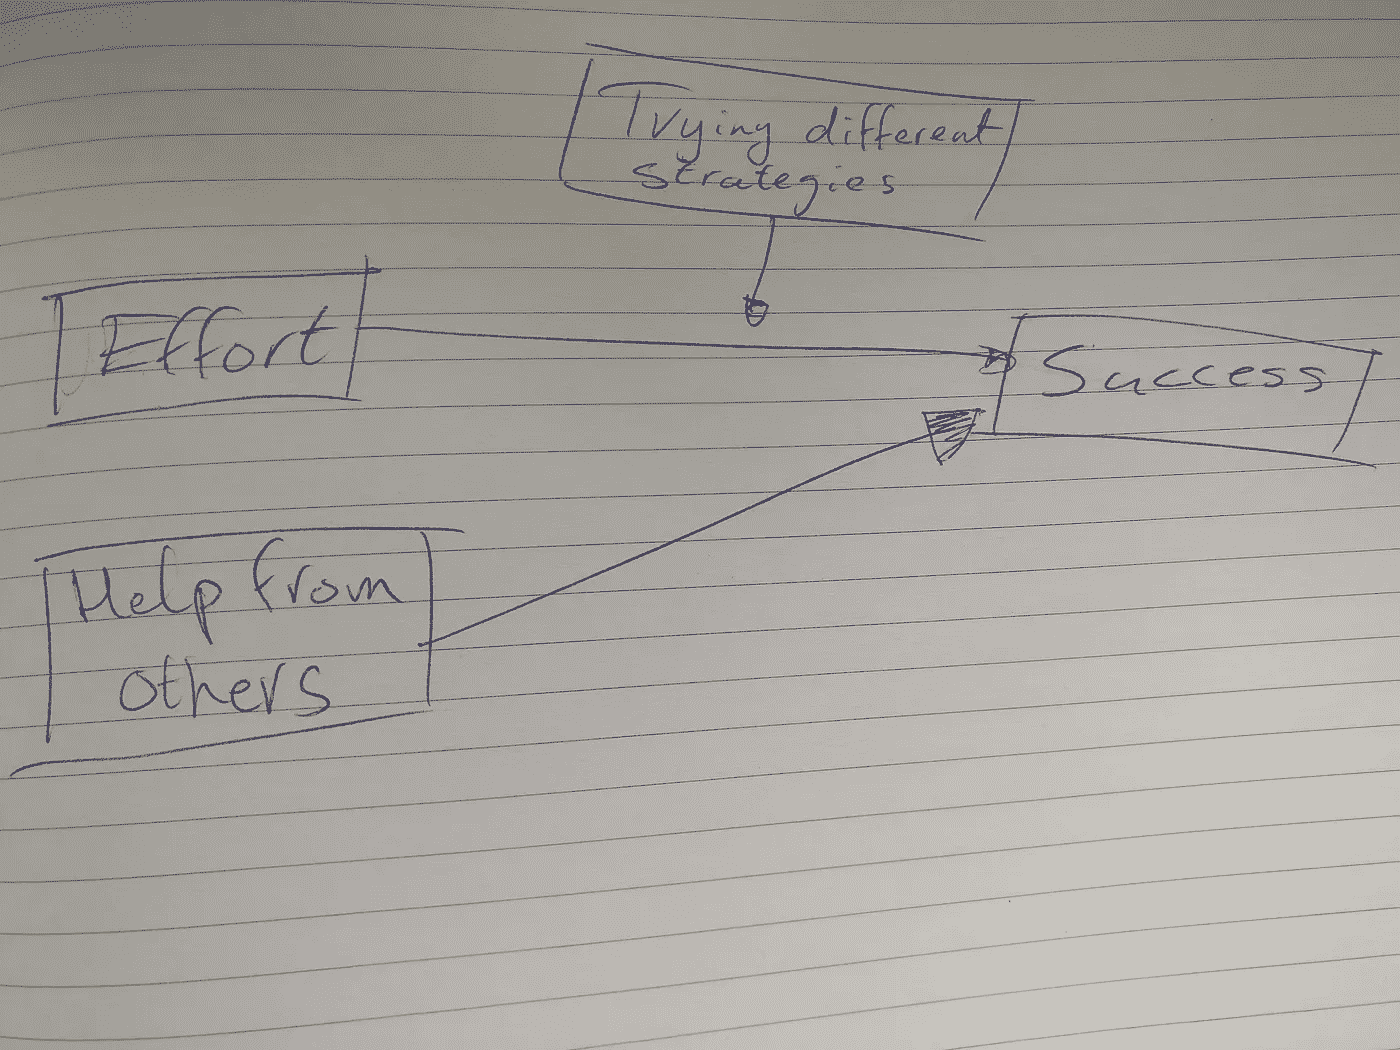 Trying different
strategies
Effort
Success
Help from
others